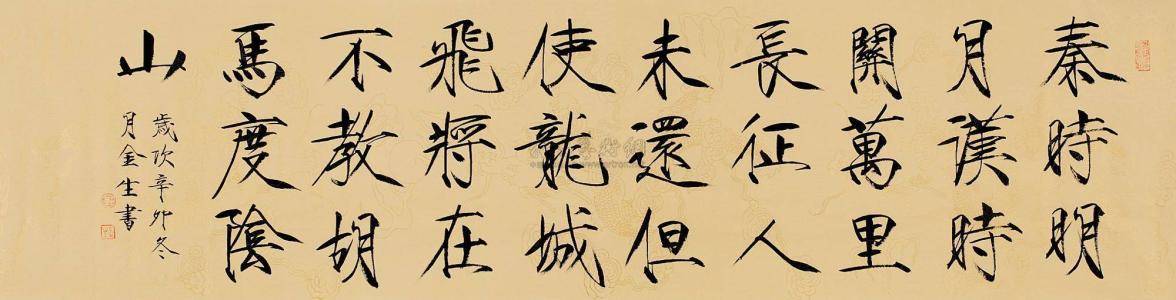 秦時明
月漢時
關萬里
長征人
未還但
使龍城
飛將在
不教胡
馬度陰
山
歲次辛卯冬
月金生書